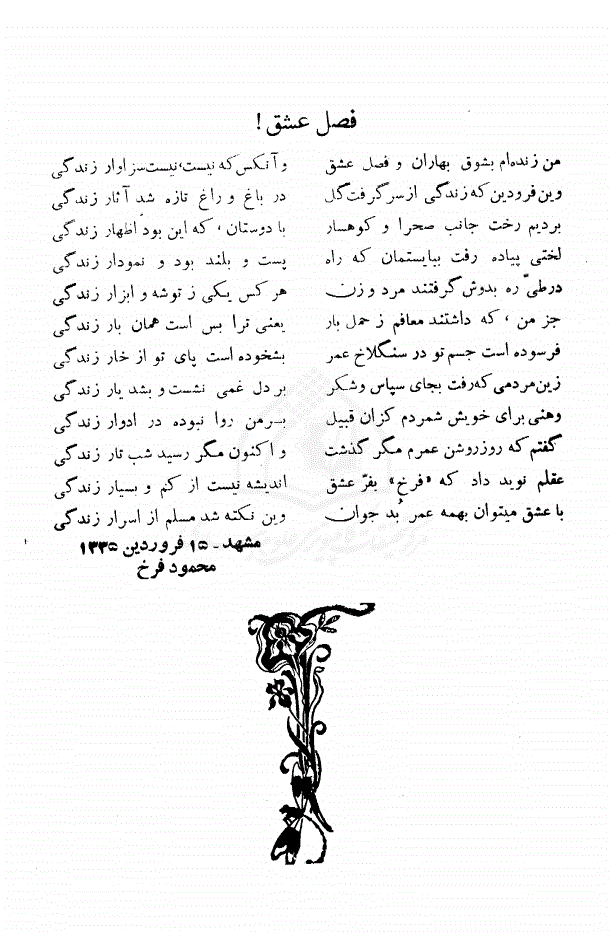 فصل عشق!
من زنده‌ام بشوق بهاران و فصل عشق وآنکس که نیست، نیست سزاوار زندگی
وین فرودین که زندگی از سر گرفت گل در باغ و راغ تازه شد آثار زندگی
بردیم رخت جانب صحرا و کوهسار با دوستان، که این بود اظهار زندگی
لختی پیاده رفت ببایستمان که راه پست و بلند بود و نمودار زندگی
درطیّ ره بدوش گرفتند مرد و زن هر کس یکی ز توشه و ابزار زندگی
جز من، که داشتند معافم ز حمل بار یعنی ترا بس است همان بار زندگی
فرسوده است جسم تو در سنگلاخ عمر بشخوده است پای تو از خار زندگی
زین مردمی که رفت بجای سپاس وشکر بر دل غمی نشست و بشد یار زندگی
وهنی برای خویش شمردم کزان قبیل بر من روا نبوده در ادوار زندگی
گفتم که روز روشن عمرم مگر گذشت واکنون مگر رسید شب تار زندگی
عقلم نوید داد که «فرخ» بفرّ عشق اندیشه نیست از کم و بسیار زندگی
با عشق میتوان بهمه عمر بُد جوان وین نکته شد مسلم از اسرار زندگی
مشهد - ۱۵ فروردین ۱۳۳۵
محمود فرخ